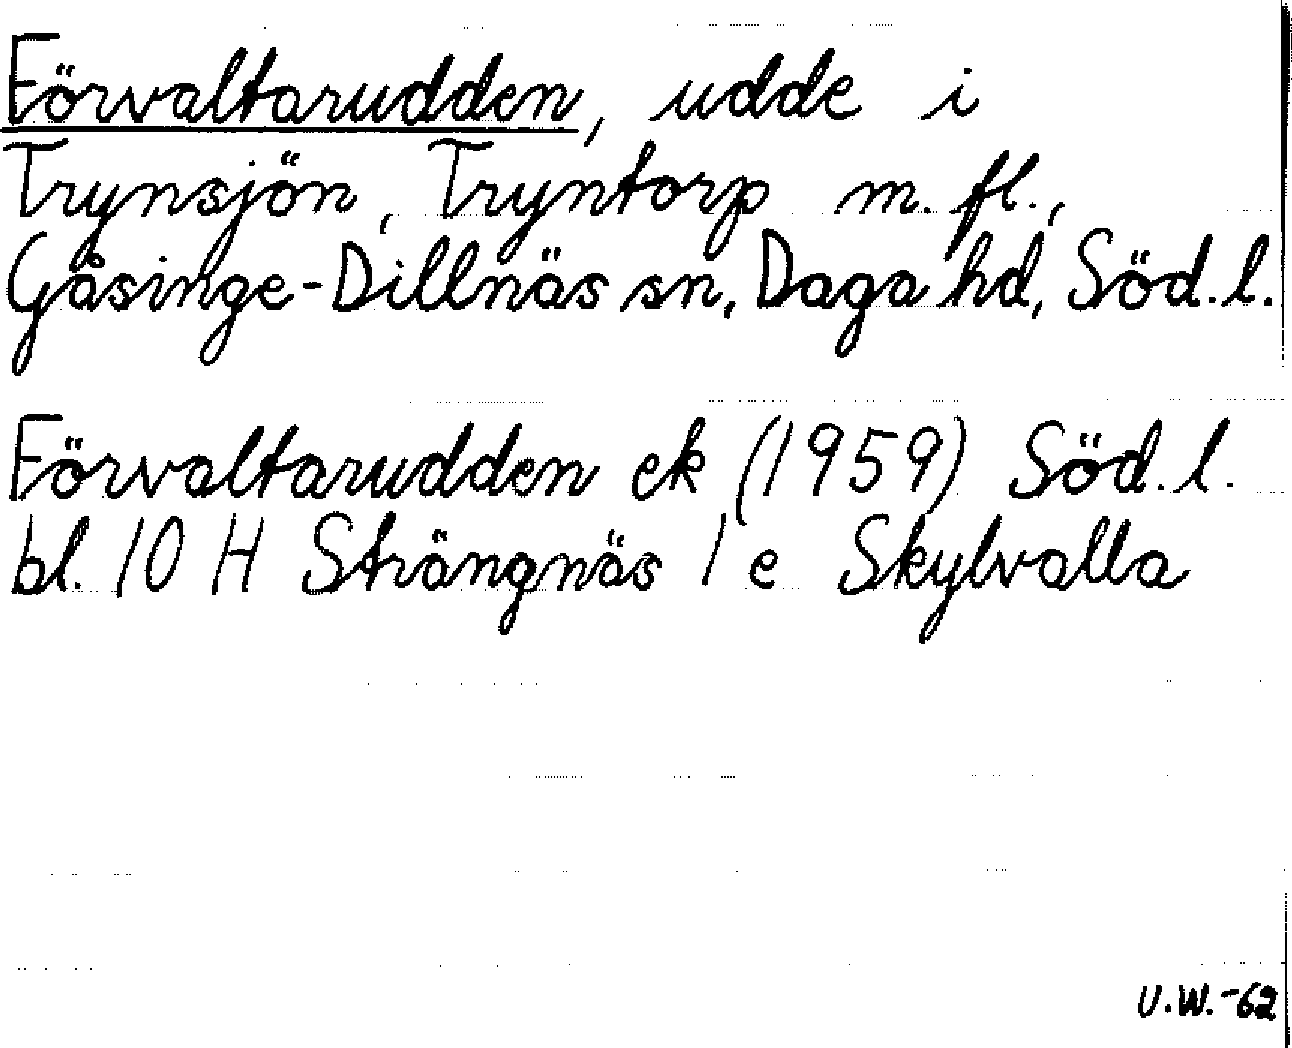 Förvaltarudden, udde i
Trynsjön, Tryntorp m. fl.,
Gåsinge-Dillnäs sn, Daga hd, Söd. l.
Förvaltarudden ek (1959) Söd. l.
bl. 10 H Strängnäs 1 e Skylvalla
U.W.-62